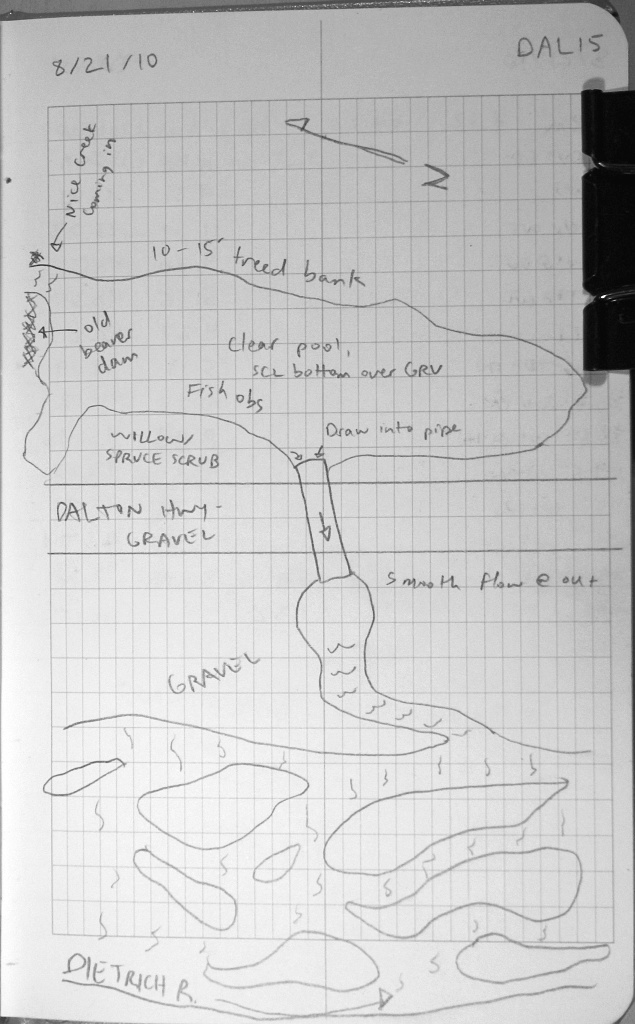 8/21/10
DAL15
N
Nice creek
coming in
10-15' treed bank
old
beaver
dam
Clear pool,
SCL bottom over GRV
Fish obs
Draw into pipe
WILLOW/
SPRUCE SCRUB
DALTON HWY-
GRAVEL
Smooth flow @ out
GRAVEL
DIETRICH R.